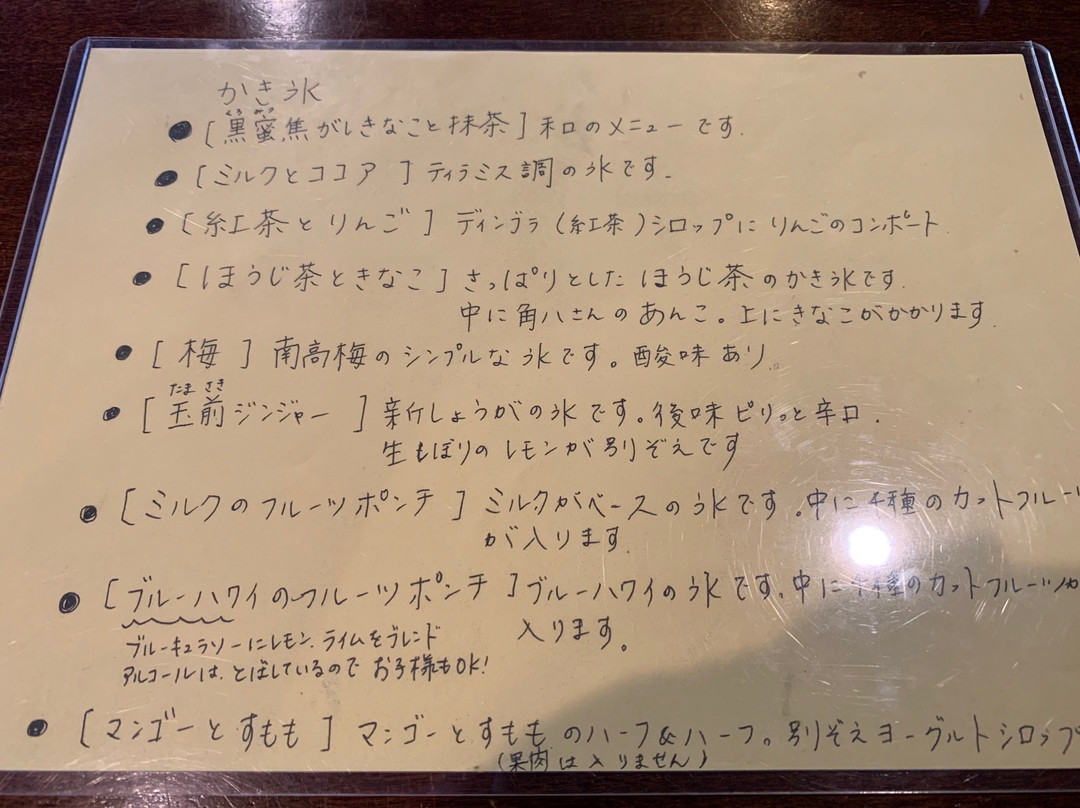 かき氷
くろ みつ
●[黒蜜焦がしきなこと抹茶]和のメニューです.
●[ミルクとココア]ティラミス調の氷です.
●[紅茶とりんご]ディンブラ(紅茶)シロップにりんごのコンポート
●[ほうじ茶ときなこ]さっぱりとしたほうじ茶のかき氷です.
中に角八さんのあんこ。上にきなこがかかります.
●[梅]南高梅のシンプルな氷です。酸味あり.
たま さき
●[玉前ジンジャー]新しょうがの氷です。後味ピリッと辛口.
生もぼりのレモンが別ぞえです
●[ミルクのフルーツポンチ]ミルクがベースの氷です.中に4種のカットフルーツ
が入ります.
●[ブルーハワイのフルーツポンチ]ブルーハワイの氷です.中に4種のカットフルーツが
入ります。
ブルーキュラソーにレモン.ライムをブレンド
アルコールは、とばしているのでお子様もOK!
●[マンゴーとすもも]マンゴーとすもものハーフ&ハーフ。別ぞえヨーグルトシロップ
(果肉は入りません)